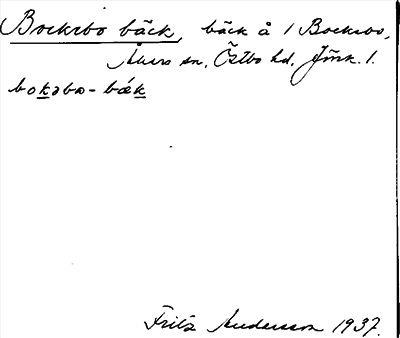 Bocksbo bäck, bäck å 1 Bocksbo,
Åkers sn, Östbo hd, Jönk. l.
bokəbo - bǽk
Fritz Andersson 1937.